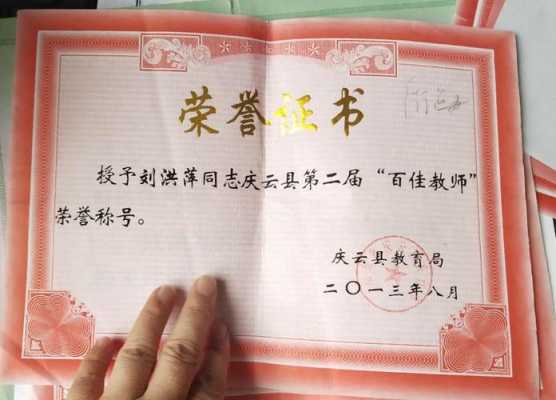 荣誉证书
授予刘洪萍同志庆云县第二届“百佳教师”
荣誉称号。
庆云县教育局
二〇一三年八月